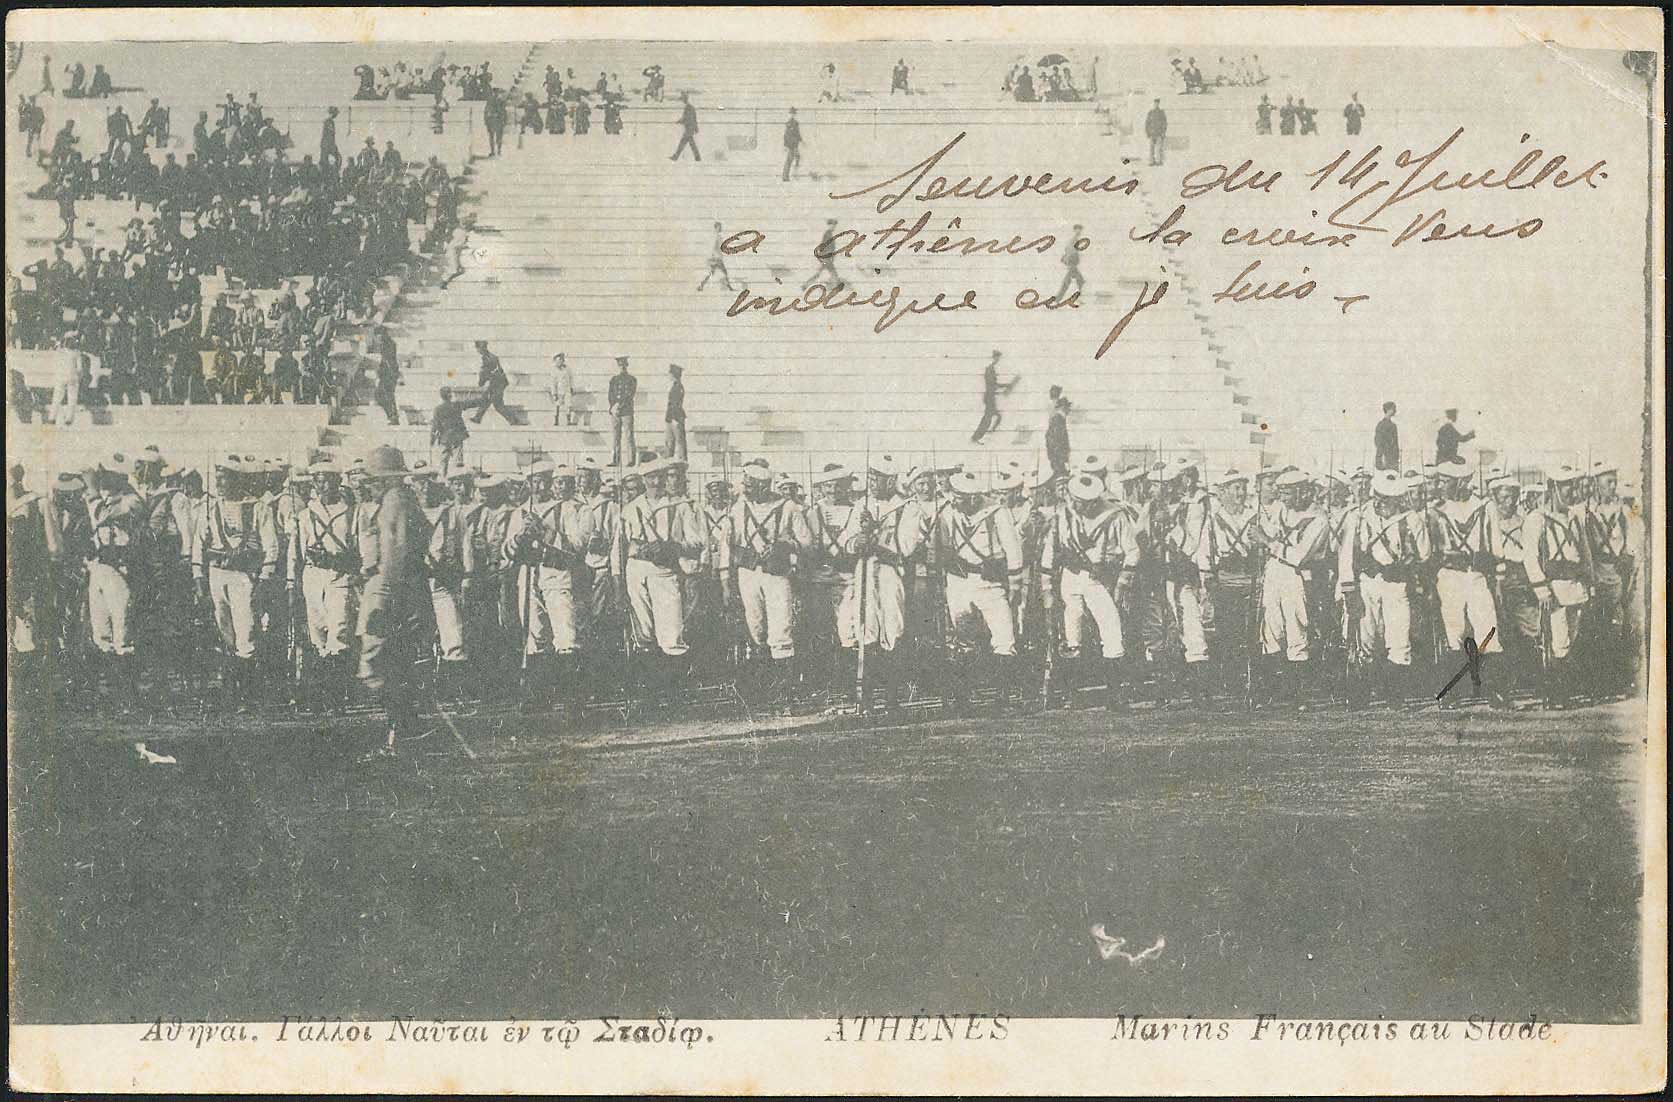 Souvenir du 14 Juillet
a athènes. la croix Vous
indique ou je suis –
Ἀθῆναι. Γάλλοι Ναῦται ἐν τῷ Σταδίῳ. ATHÈNES Marins Français au Stade